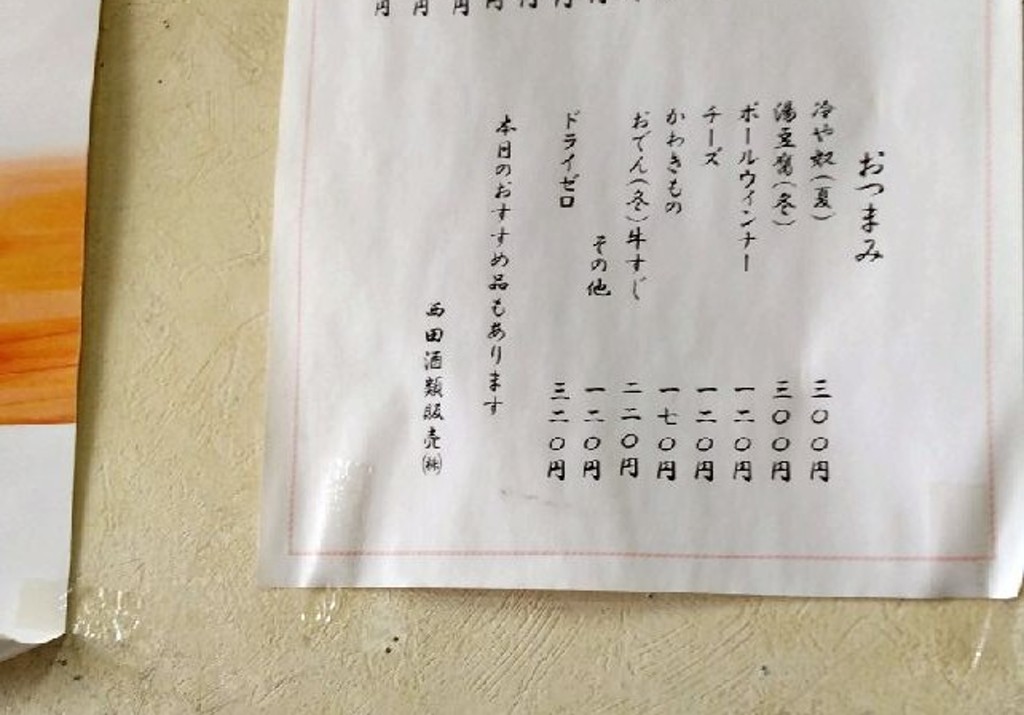 円 円 円 円 円 円 円
おつまみ
冷や奴(夏) 三〇〇円
湯豆腐(冬) 三〇〇円
ポールウィンナー 一二〇円
チーズ 一二〇円
かわきもの 一七〇円
おでん(冬)牛すじ 二二〇円
その他 一二〇円
ドライゼロ 三二〇円
本日のおすすめ品もあります
西田酒類販売㈱